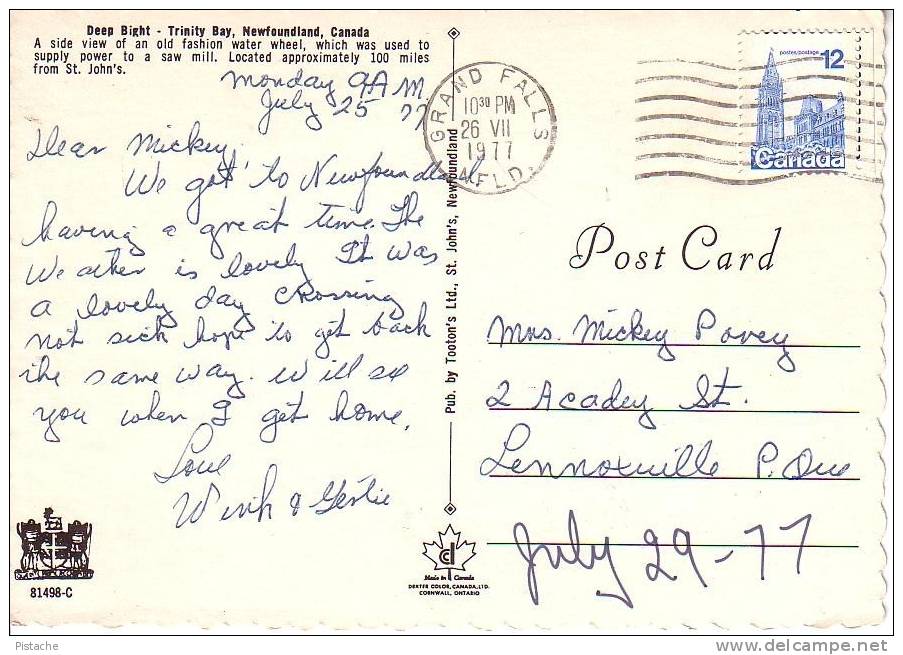 Deep Bight - Trinity Bay, Newfoundland, Canada
A side view of an old fashion water wheel, which was used to
supply power to a saw mill. Located approximately 100 miles
from St. John's.
Monday 9 A M.
July 25 77
Dear Mickey,
We got to Newfoundland
having a great time. The
Weather is lovely It was
a lovely day crossing
not sick hope to get back
the same way. Will see
you when I get home.
Love
& Gertie
81498-C
Pub. by Tooton's Ltd., St. John's, Newfoundland
Made in Canada
DEXTER COLOR, CANADA, LTD.
CORNWALL, ONTARIO
GRAND FALLS
10 30 PM
26 VII
1977
NFLD.
postes/postage
12
Canada
Post Card
Mrs. Mickey Povey
2 Acadey St.
Lennoxville P. Que
July 29-77
Pistache
www.delcampe.net